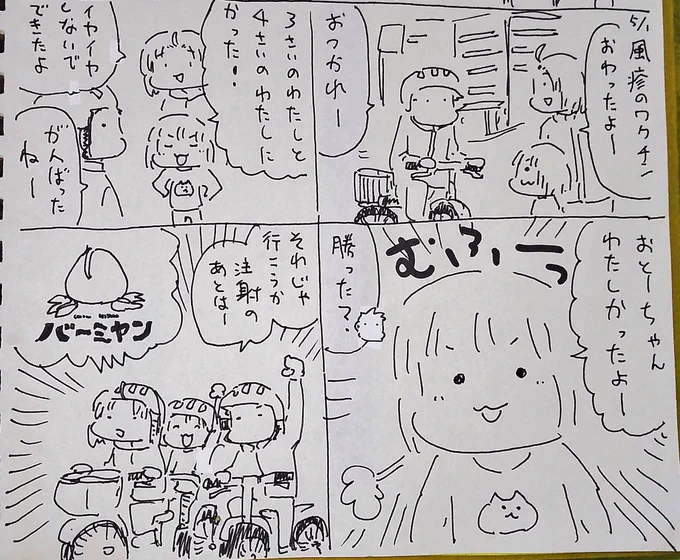 5/1
風疹のワクチン
おわったよー
おつかれー
おとーちゃん
わたしかったよー
むふーっ
勝った?
3さいのわたしと
4さいのわたしに
かった!
イヤイヤ
しないで
できたよ
がんばった
ねー
それじゃ
行こうか
注射の
あとはー
バーミヤン